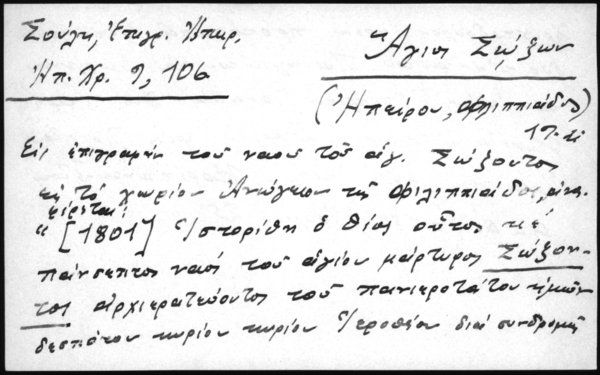 Σούλη, Ἐπιγρ. Ἠπείρ,
Ἠπ. Χρ. 9, 106
Ἅγιος Σώζων
(Ἠπείρου, Φιλιππιάδος)
Εἰς ἐπιγραφὴν τοῦ ναοῦ τοῦ ἁγ. Σώζοντος
εἰς τὸ χωρίον Ἀνώγειον τῆς Φιλιππιάδος, ἀνα-
φέρεται:
"[1801] Ἱστορίθη ὁ θεῖος οὗτος κέ
πάνσεπτος ναός τοῦ ἁγίου μάρτυρος Σώζον-
τος ἀρχιερατεύοντος τοῦ πανιεροτάτου ἡμῶν
δεσπότου κυρίου κυρίου Ἱεροθέου διά συνδρομῆς